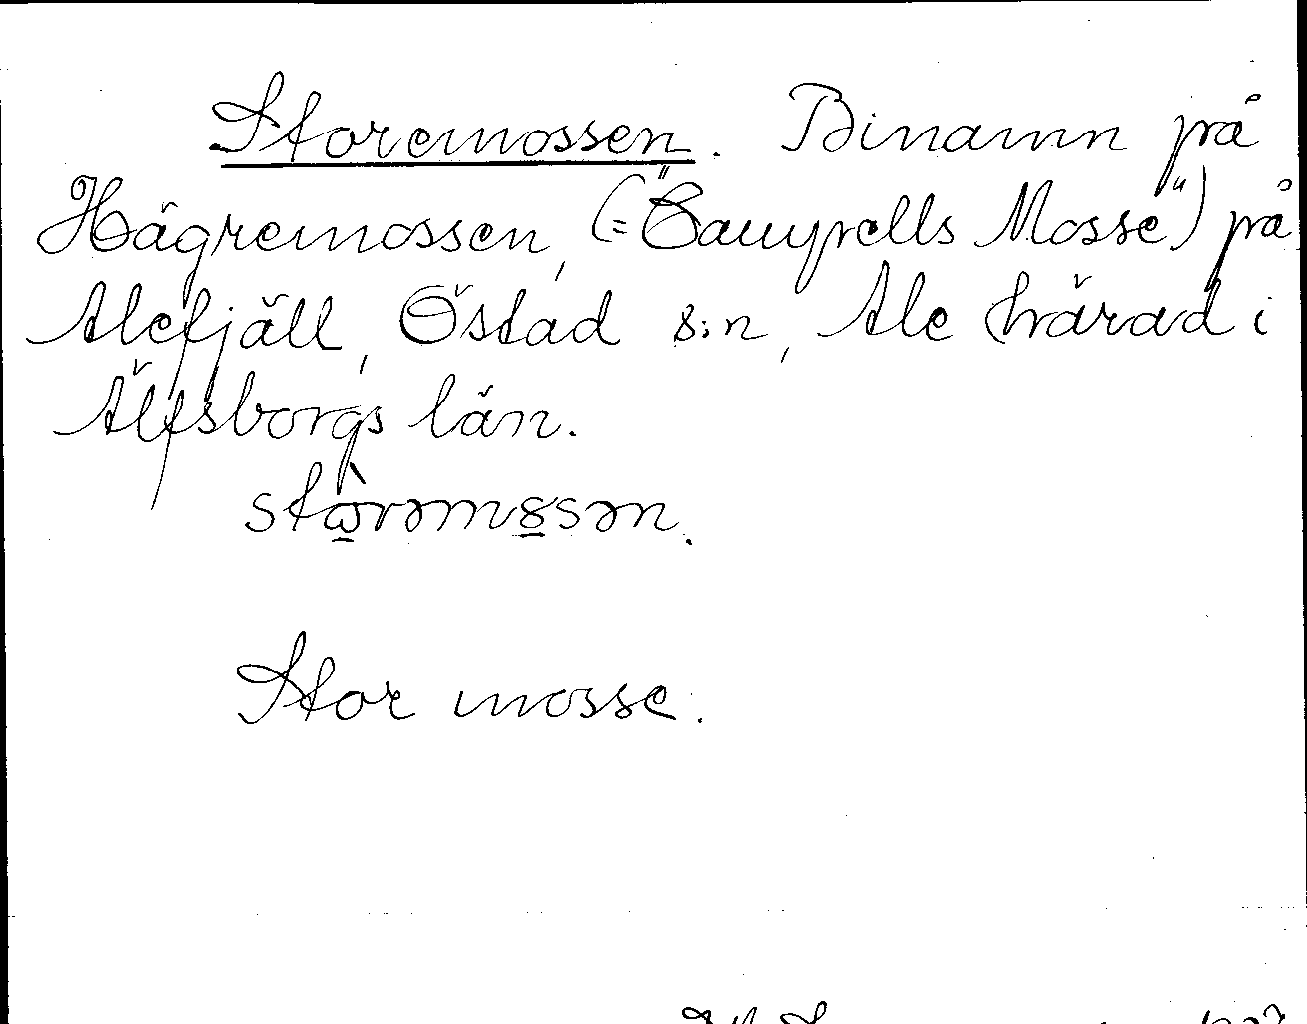 Storemossen. Binamn på
Hägremossen, (="Campells Mosse") på
Alefjäll, Östad s:n, Ale härad i
Älfsborgs län.
stɷ̀rəm8sən.
Stor mosse.